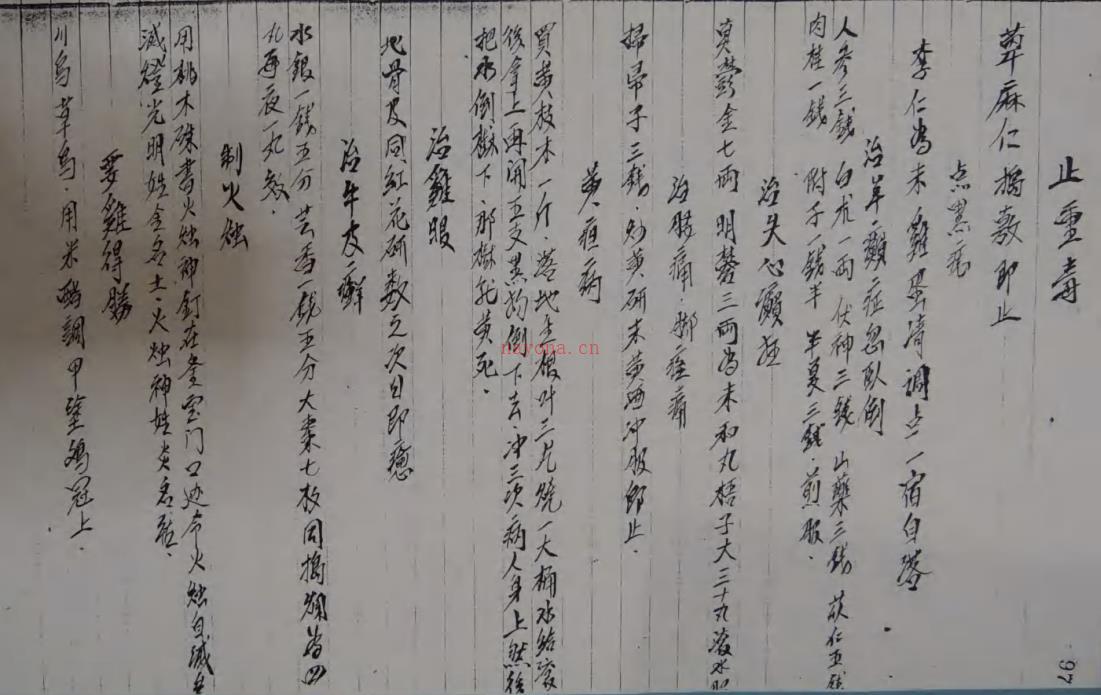 止重毒
萆麻仁搗敷即止
点黑痣
李仁为末雞蛋清調点一宿自落
治羊癲症忽臥倒
人参三錢 白朮一兩 伏神三錢 山藥三錢 苡仁五錢
肉桂一錢 附子一錢半 半夏三錢.煎服.
治失心癲狂
真鬱金七兩 明礬三兩为末和丸梧子大三十丸滚水
治腰痛.脚症痛
掃帚子三錢.炒黄研末黄酒冲服即止.
黄疸病
買黄枝木一斤.落地金銀叶三片燒一大桶水给
後拿上再用五支黑狗倒下去.冲三次病人身上然後
把水倒樹下.那樹就黄死.
治雞眼
地骨皮同紅花研敷之次日即癒
治牛皮癬
水銀一錢五分 芸香一錢五分大棗七枚同搗爛为四
丸每夜一丸
制火烛
用桃木硃書火烛神釘在 門口 火烛自滅
滅燈光明姓金名土.火烛神姓炎名
要雞得勝
川烏草烏.用米醋調甲塗鸡冠上.
nayona.cn
97